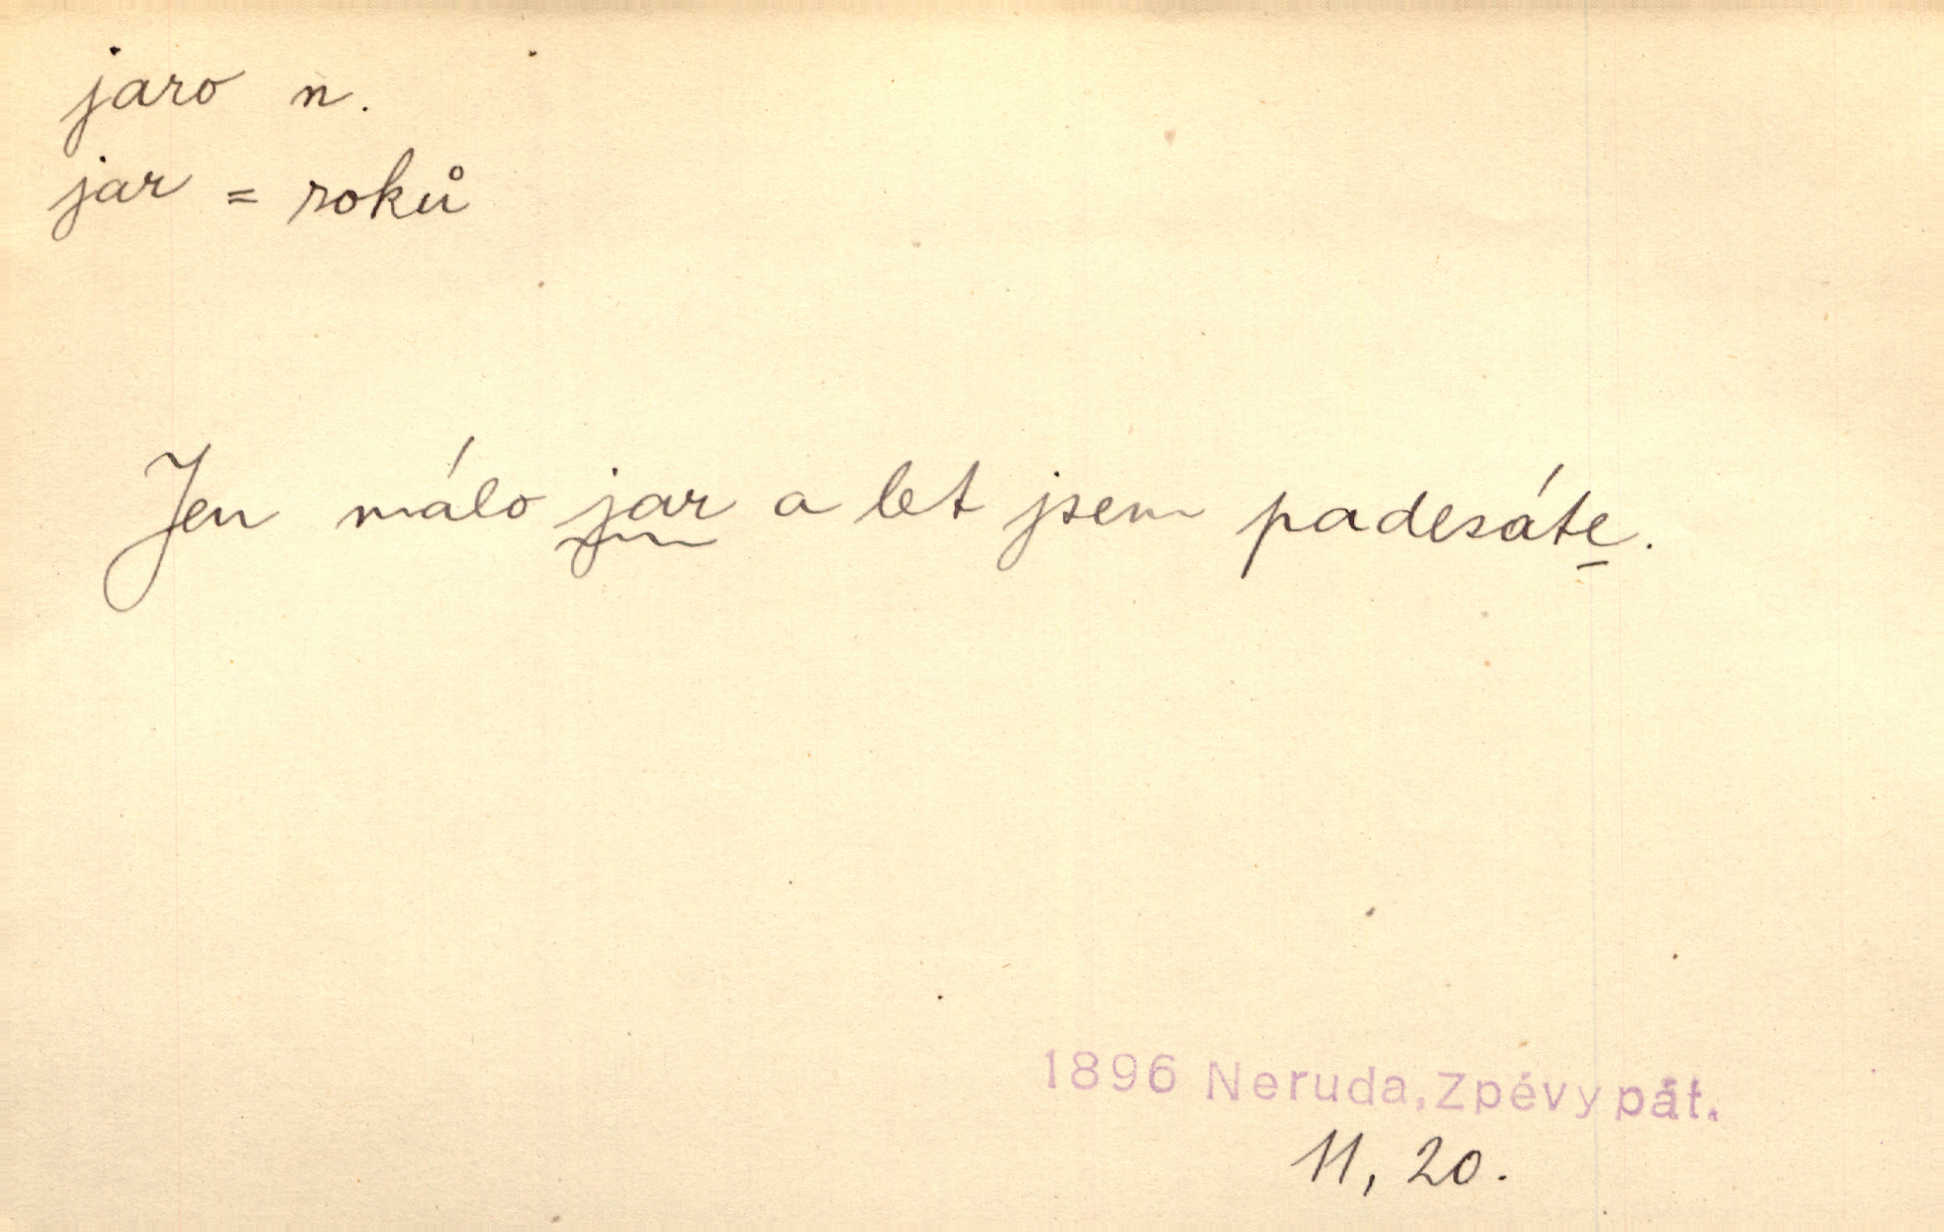 jaro n.
jar = roků
Jen málo jar a let jsem padesáte.
1896 Neruda, Zpévy pát.
11, 20.